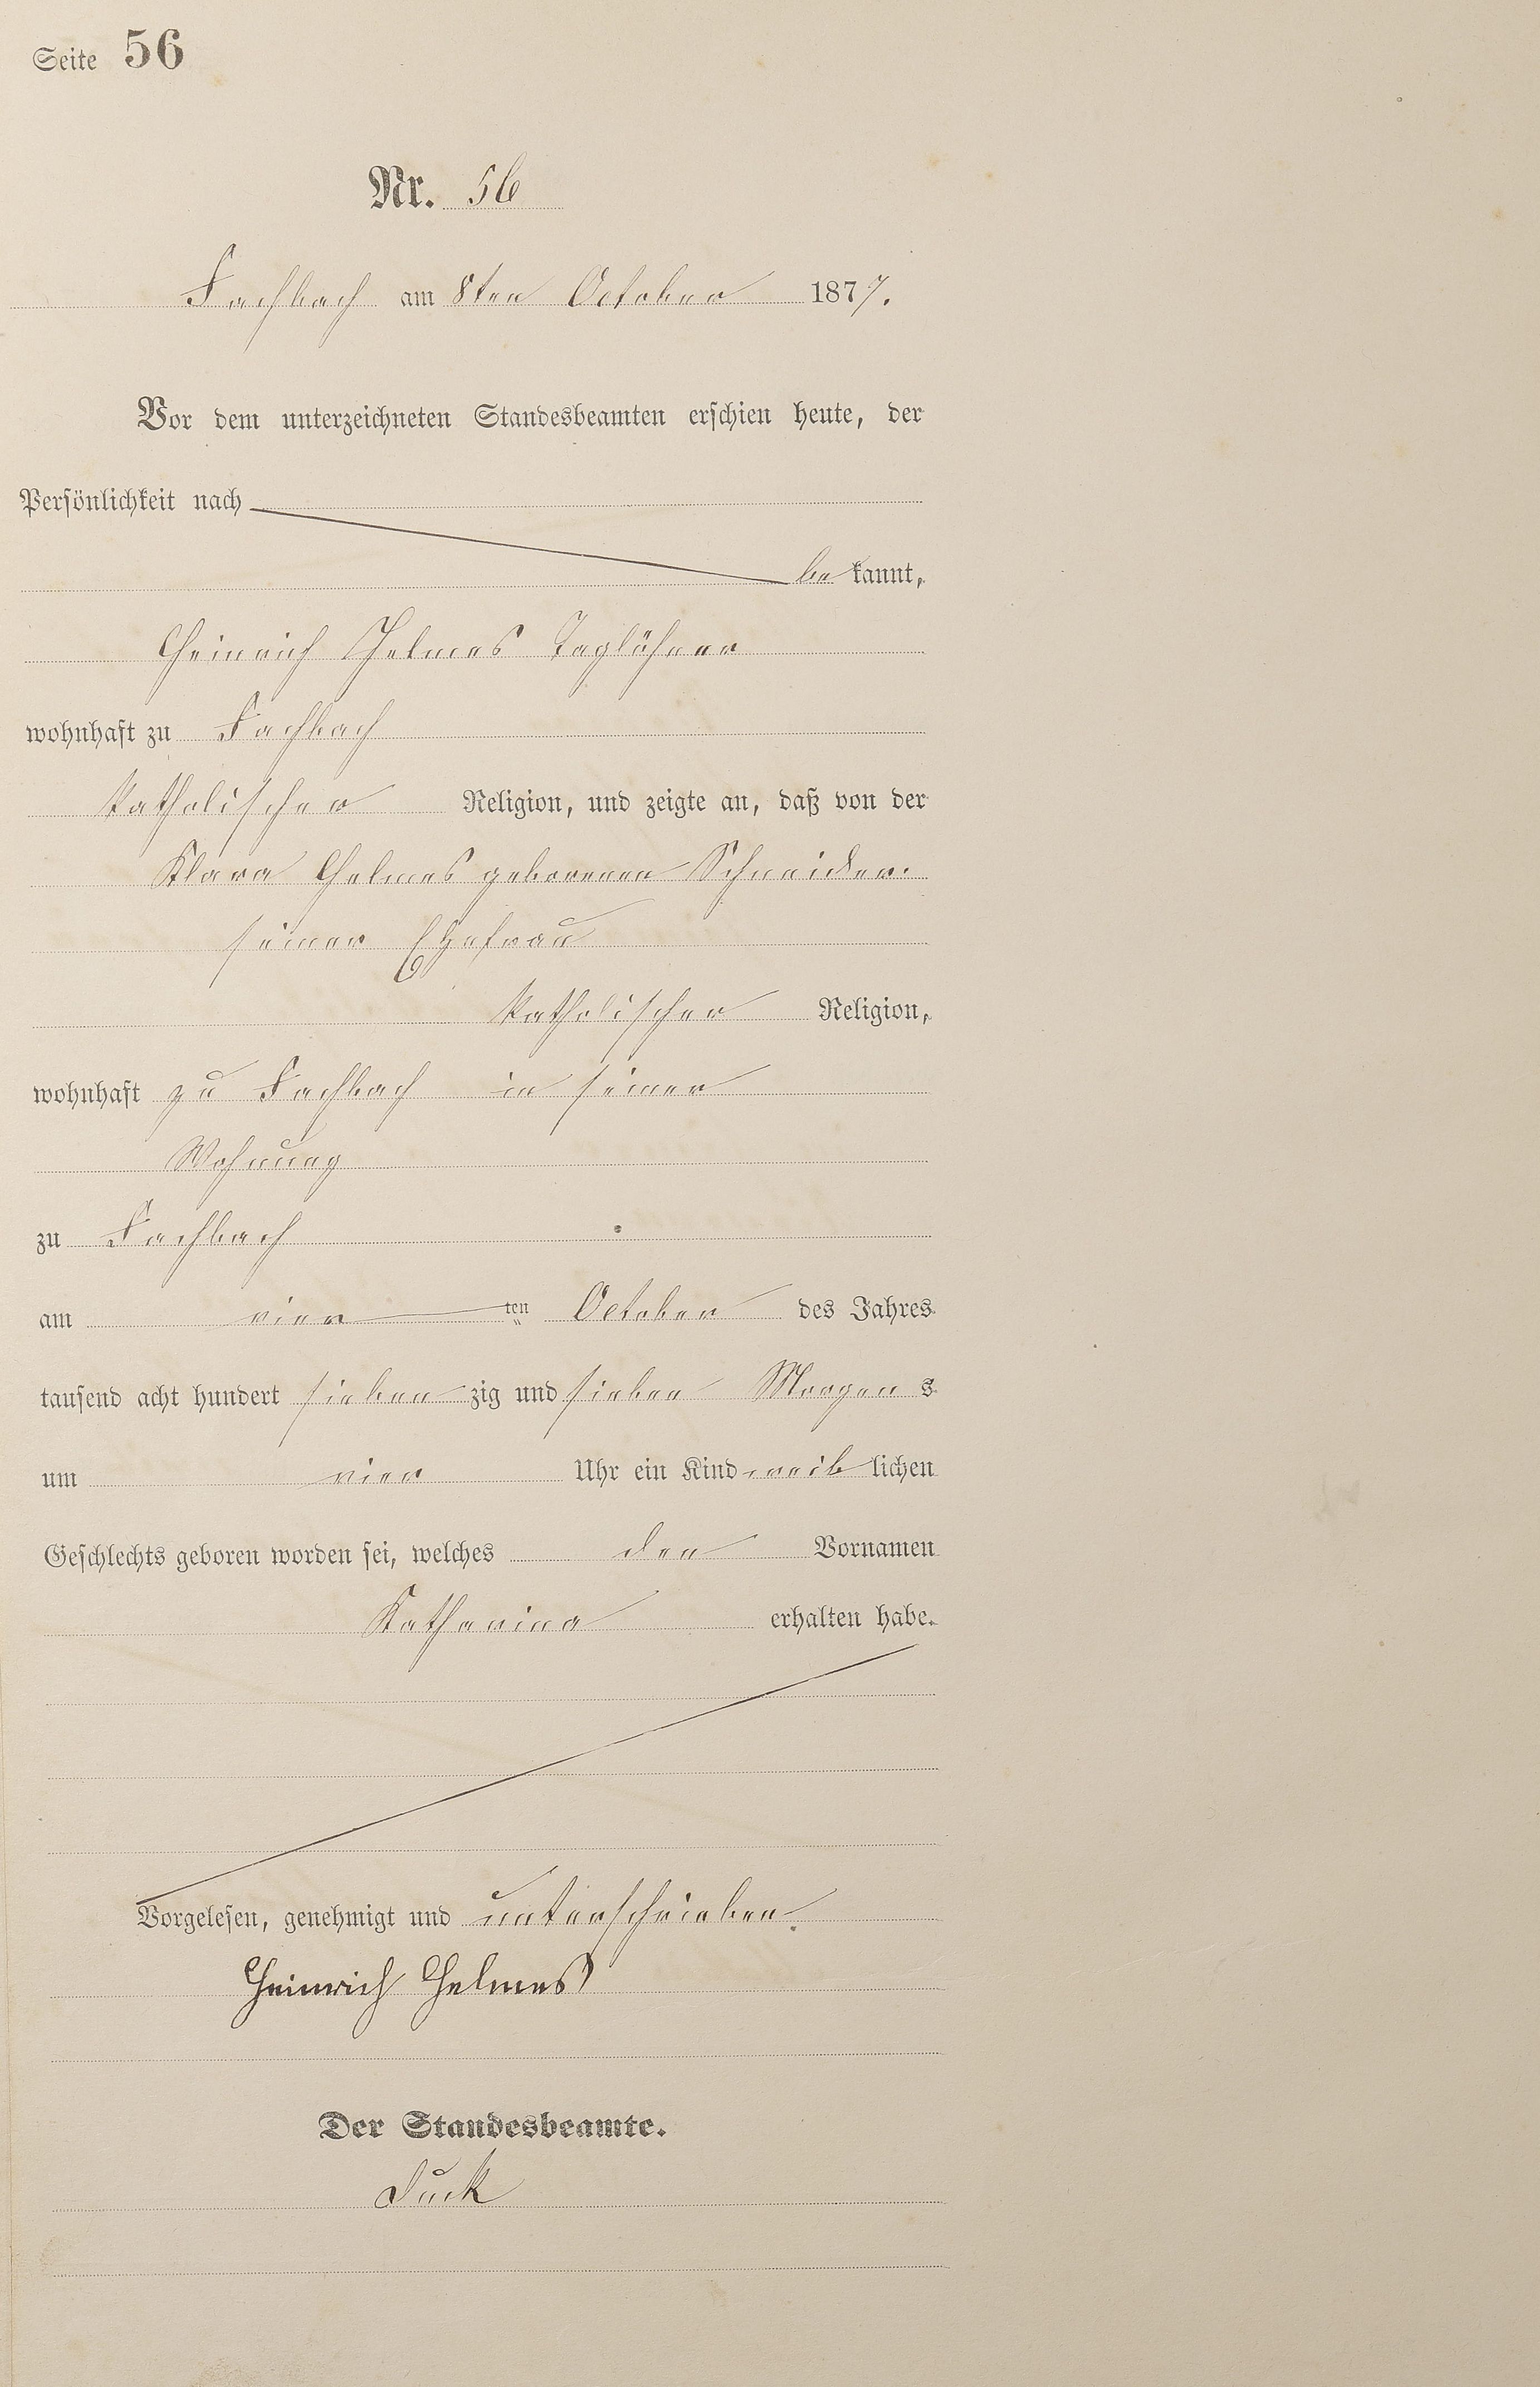 Seite 56
Nr. 56
Fachbach am 8ten October 1877.
Vor dem unterzeichneten Standesbeamten erschien heute, der
Persönlichkeit nach
be kannt,
Heinrich Helmes Taglöhner
wohnhaft zu Fachbach
katholischer Religion, und zeigte an, daß von der
Klara Helmes geborenen Schneider
seiner Ehefrau
katholischer Religion,
wohnhaft zu Fachbach in seiner
Wohnung
zu Fachbach
am vier ten October des Jahres
tausend acht hundert sieben zig und sieben Morgens
um vier Uhr ein Kind weib lichen
Geschlechts geboren worden sei, welches den Vornamen
Katharina erhalten habe.
Vorgelesen, genehmigt und unterschrieben.
Heinrich Helmes
Der Standesbeamte.